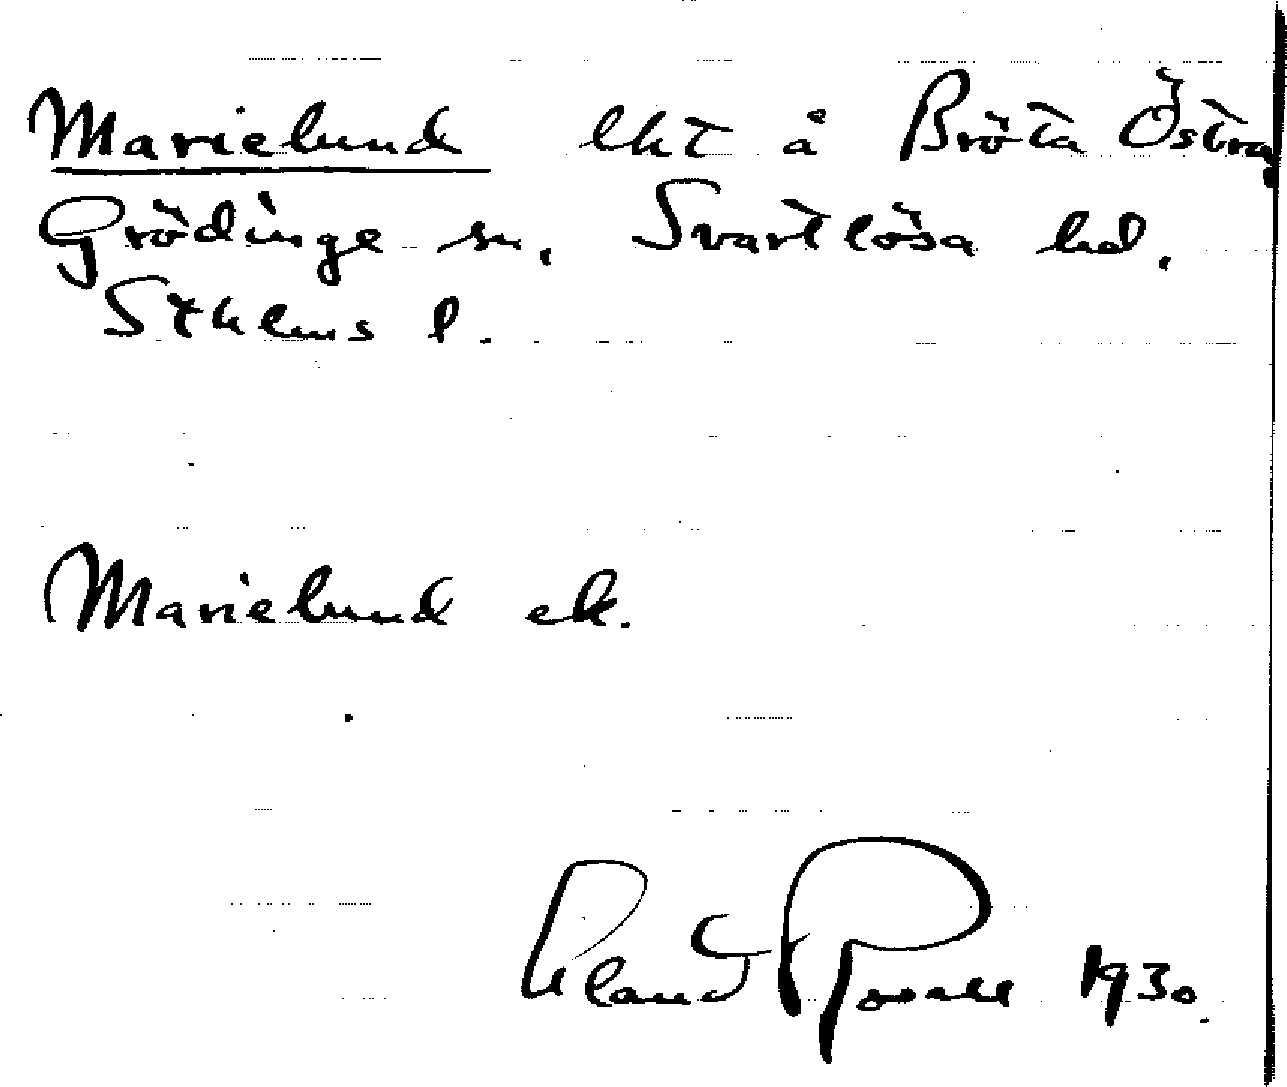 Marielund lht å Bröta Östra
Grödinge sn, Svartlösa hd,
Sthlms l.
Marielund ek.
1930.